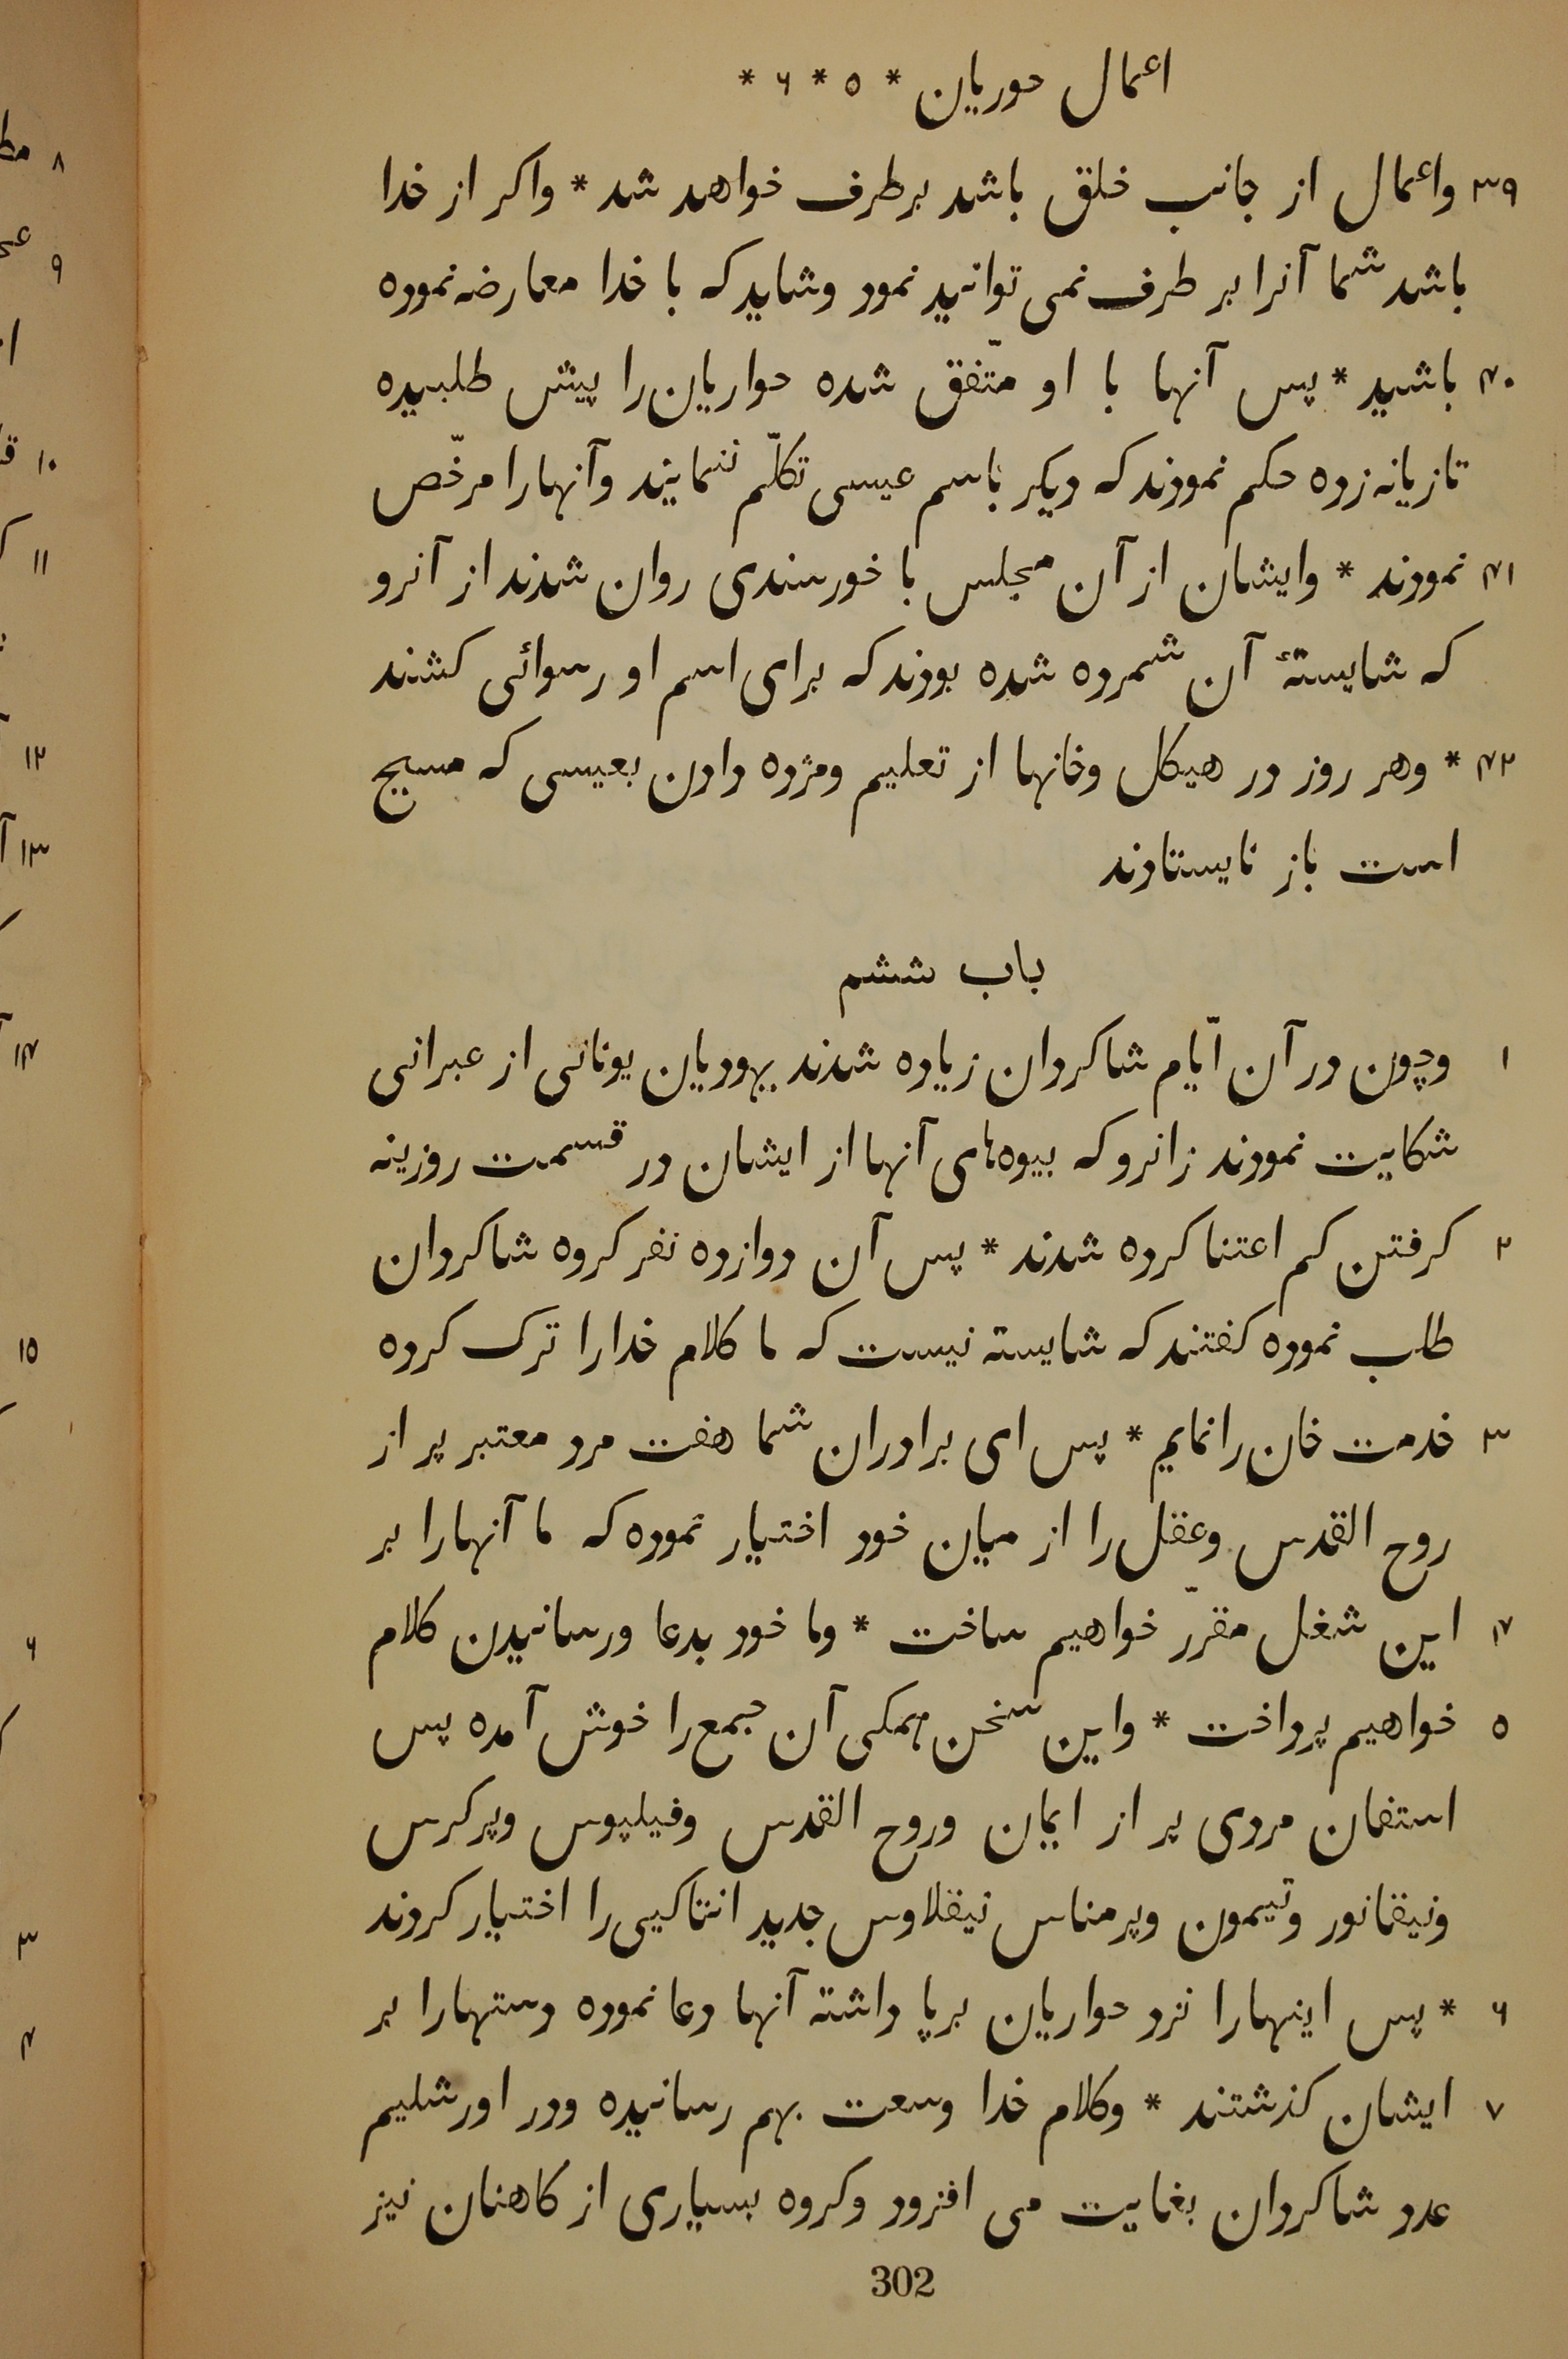 اعمال حوریان * ٥ * ۶ *
۳۹ واعمال از جانب خلق باشد برطرف خواهد شد * واکر از خدا
باشد شما آنرا بر طرف نمی توانید نمود وشاید که با خدا معارضه نموده
۴۰ باشید * پس آنها با او متّفق شده حواریان را پیش طلبیده
تازیانه زده حکم نمودند که دیکر باسم عیسی تکلّم ننمایند وآنهارا مرخّص
۴۱ نمودند * وایشان از آن مجلس با خورسندی روان شدند از آنرو
که شایستهٔ آن شمرده شده بودند که برای اسم او رسوائی کشند
۴۲ * وهر روز در هیکل وخانها از تعلیم ومژده دادن بعیسی که مسیح
است باز نایستادند
باب ششم
۱ وچون در آن ایّام شاکردان زیاده شدند یهودیان یونانی از عبرانی
شکایت نمودند زانرو که بیوه‌های آنها از ایشان در قسمت روزینه
۲ کرفتن کم اعتنا کرده شدند * پس آن دوازده نفر کروه شاکردان
طلب نموده کفتند که شایسته نیست که ما کلام خدارا ترک کرده
۳ خدمت خان را نمایم * پس ای برادران شما هفت مرد معتبر پر از
روح القدس وعقل را از میان خود اختیار نموده که ما آنهارا بر
۴ این شغل مقرّر خواهیم ساخت * وما خود بدعا ورسانیدن کلام
٥ خواهیم پرداخت * واین سخن همکی آن جمع را خوش آمده پس
استفان مردی پر از ایمان وروح القدس وفیلپوس وپرکرس
ونیقانور وتیمون وپرمناس نیقلاوس جدید انتاکیی را اختیار کردند
۶ * پس اینهارا نزد حواریان برپا داشته آنها دعا نموده دستهارا بر
۷ ایشان کذشتند * وکلام خدا وسعت بهم رسانیده ودر اورشلیم
عدد شاکردان بغایت می افزود وکروه بسیاری از کاهنان نیز
302